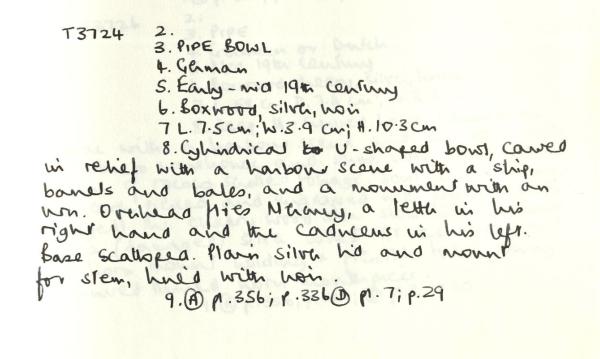 T3724 2.
3. PIPE BOWL
4. German
5. Early-mid 19th century
6. Boxwood, silver, horn
7 L. 7.5cm; W. 3.9 cm; H. 10.3cm
8. Cylindrical U-shaped bowl, carved
in relief with a harbour scene with a ship,
barrels and bales, and a monument with an
urn. Overhead flies Mercury, a letter in his
right hand and the caduceus in his left.
Base scalloped. Plain silver lid and mount
for stem, lined with horn.
9. Ⓐ pl. 356; p. 336 Ⓓ pl. 7; p. 29